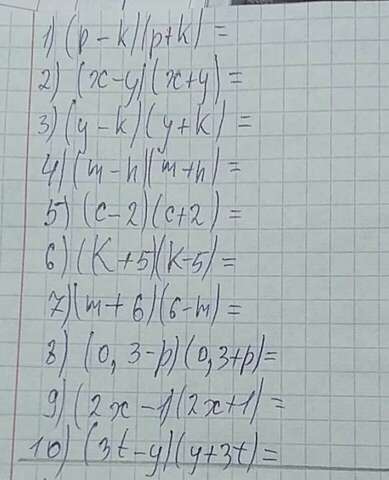 1) (p-k)(p+k) =
2) (x-y)(x+y) =
3) (y-k)(y+k) =
4) (m-n)(m+n) =
5) (c-2)(c+2) =
6) (K+5)(K-5) =
7) (m+6)(6-m) =
8) (0,3-p)(0,3+p) =
9) (2x-1)(2x+1) =
10) (3t-y)(y+3t) =